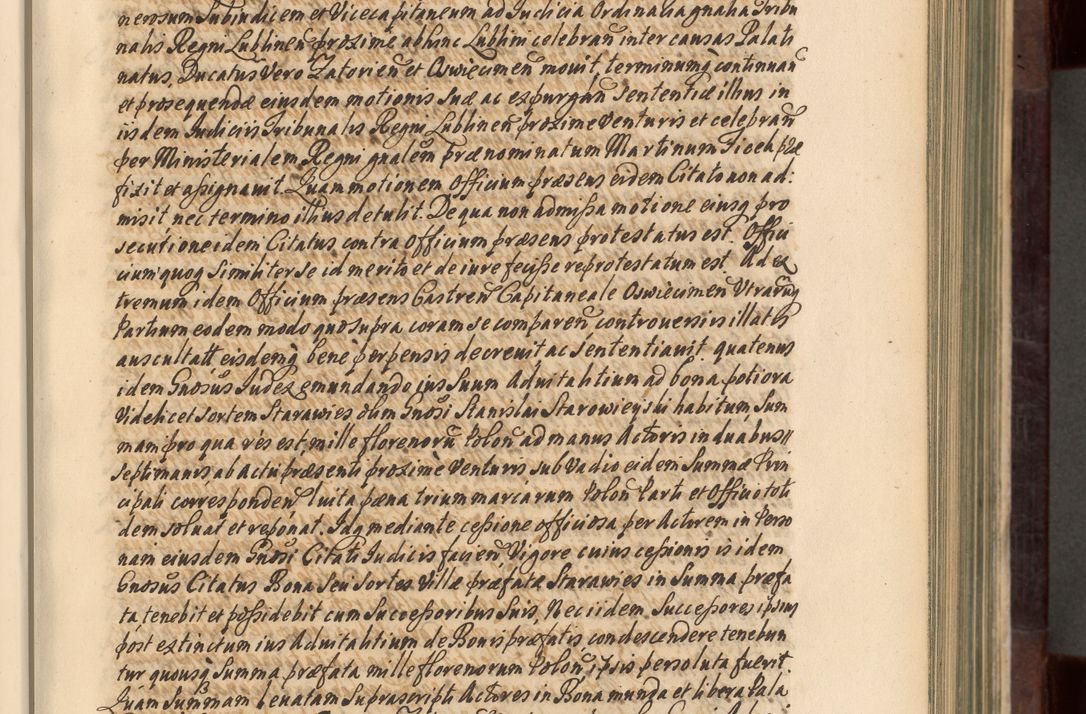 nerosum Subiudicem et Vicecapitaneum ad Iudicia Ordinaria gnalia Tribu
nalis Regni Lublinen̄ proxime abhinc Lublini celebran̄ inter causas Palati
natus, Ducatus Vero Zatorien̄ et Oswiecimen̄ mouit, terminumq̨ continuan̄
et prosequendæ eiusdem motionis Suæ ac expurgan̄ Sententiæ illius in
iisdem Iudiciis Tribunalis Regni Lublinen̄ proxime Venturis et celebran̄
per Ministerialem Regni gnalem prænominatum Martinum Ficek præ
fixit et assignauit. Quam motionem Officium præsens eidem Citato non ad:
misit nec termino illius detulit. De qua non admissa motione eiusq̨ pro
secutione idem Citatus contra Officium præsens protestatus est. Offici
cium quoq̨ Similiter Se id merito et de iure fecisse reprotestatum est. Ad ex
tremum idem Officium præsens Castren̄ Capitaneale Oswiecimen̄ Utrarūq̨
Partium eodem modo quo Supra coram Se comparen̄ controuersiis illatis
auscultatt eisdemq̨ bene perpensis decreuit ac Sententiauit quatenus
idem Gnosus Iudex emundando ius Suum Aduitalitium ad bona potiora
Videlicet Sortem Starawies olim Gnosi Stanislai Starowieyski habitum, Sum
mam pro qua res est, mille florenorū Polon̄ ad manus Actoris in duabus
Septimanis, ab actu præsenti proxime Venturis sub Vadio eidem Summæ Prin
cipali corresponden̄ luita pæna trium marcarum Polon̄ Parti et Officio toti
dem soluat et reponat. Idq̨ mediante cessione officiosa per Actorem in Perso
nam eiusdem Gnosi Citati Iudicis facien̄, Vigore cuius cessionis is idem
Gnosus Citatus Bona Seu Sortes Villæ præfatæ Starawies in Summa præfa
ta tenebit et possidebit cum Successoribus Suis, Nec iidem Successores ipsius
post extinctum ius Aduitalitium de Bonis præfatis, condescendere tenebun
tur quousq̨ Summa præfata mille florenorum Polon̄ ipsis persoluta fuerit.
Quam Summam leuatam Suprascripti Actores in Bona munda et libera Pala